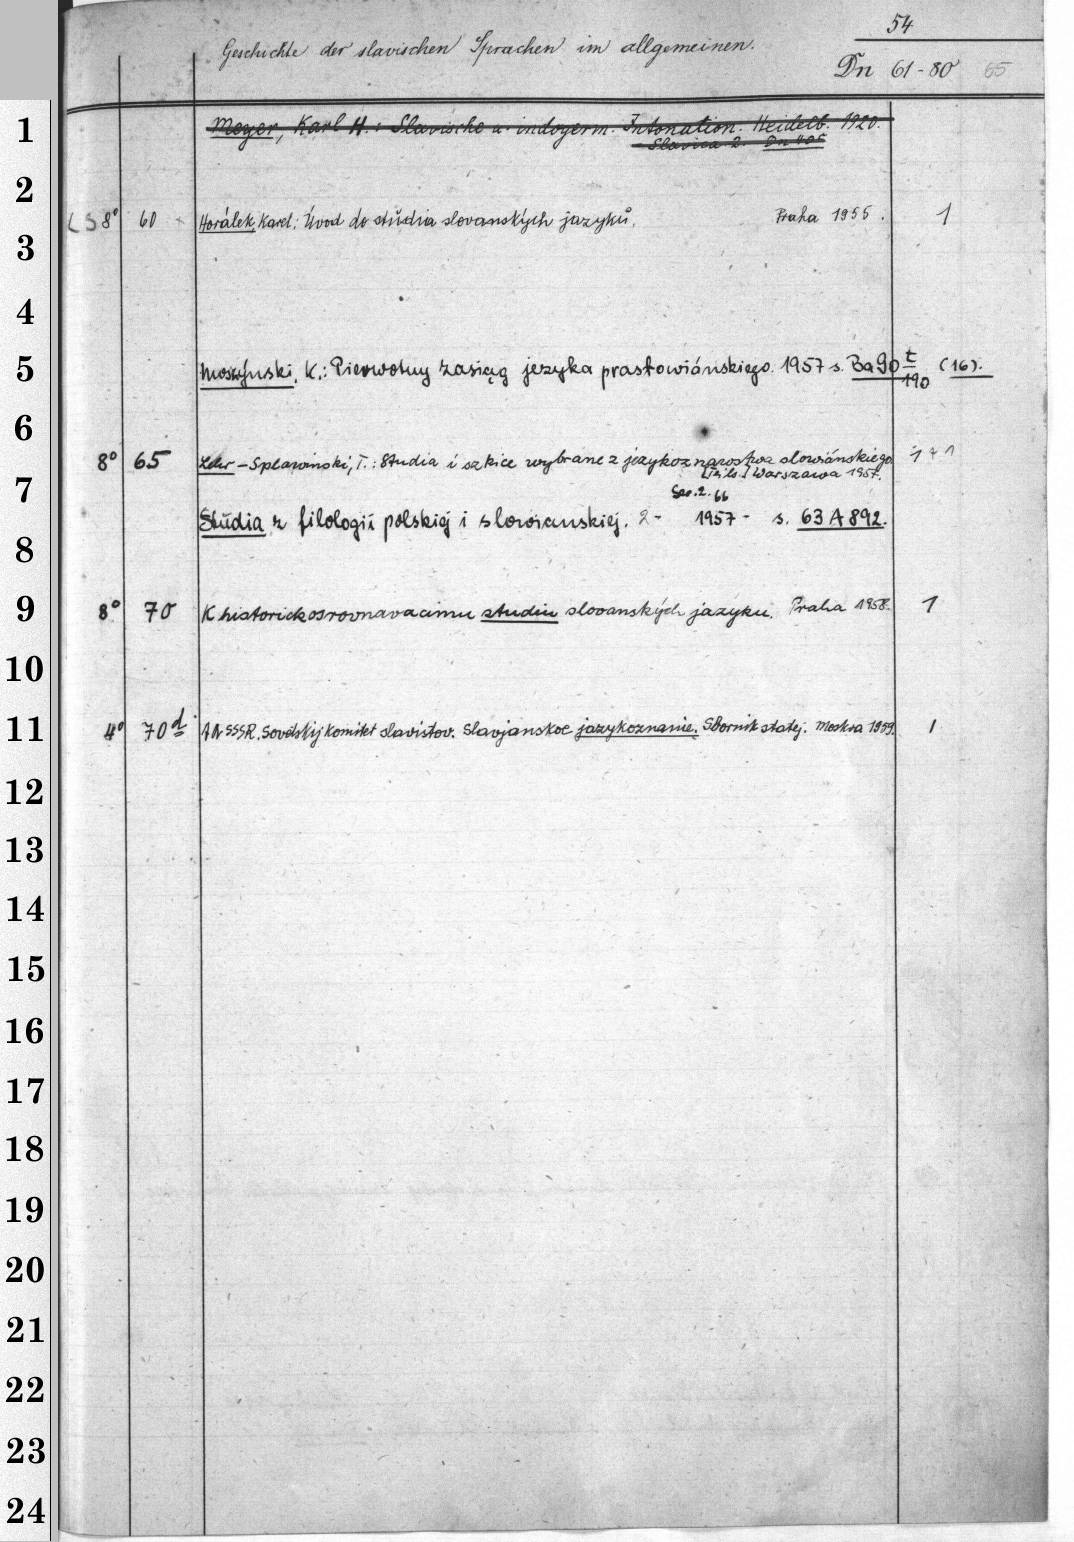 54
Geschichte der slavischen Sprachen im allgemeinen.
Dn 61-80 65
1 Meyer, Karl H.: Slavische u. indogerm. Intonation. Heidelb. 1920.
Slavica 2. Dn 405
2
LS 8° 60 Horálek, Karel: Úvod do studia slovanských jazyků. Praha 1955. 1
3
4
5 Moszyński, K.: Pierwotny zasiąg języka prasłowiánskiego. 1957 s. Ba 90 t/190 (16).
6
8° 65 Lehr-Spławinski, T.: Studia i szkice wybrane z językoznawstwa słowiánskiego. 1+1
7 Warszawa 1957.
Ser. 2. 66
Studia z filologii polskiej i słowianskiej. 2- 1957- s. 63 A 892.
8
9 8° 70 K historickosrovnavacimu studiu slovanských jazyku. Praha 1958. 1
10
11 4° 70d AN SSSR. Sovetskij komitet slavistov. Slavjanskoe jazykoznanie. Sbornik statej. Moskva 1959. 1
12
13
14
15
16
17
18
19
20
21
22
23
24